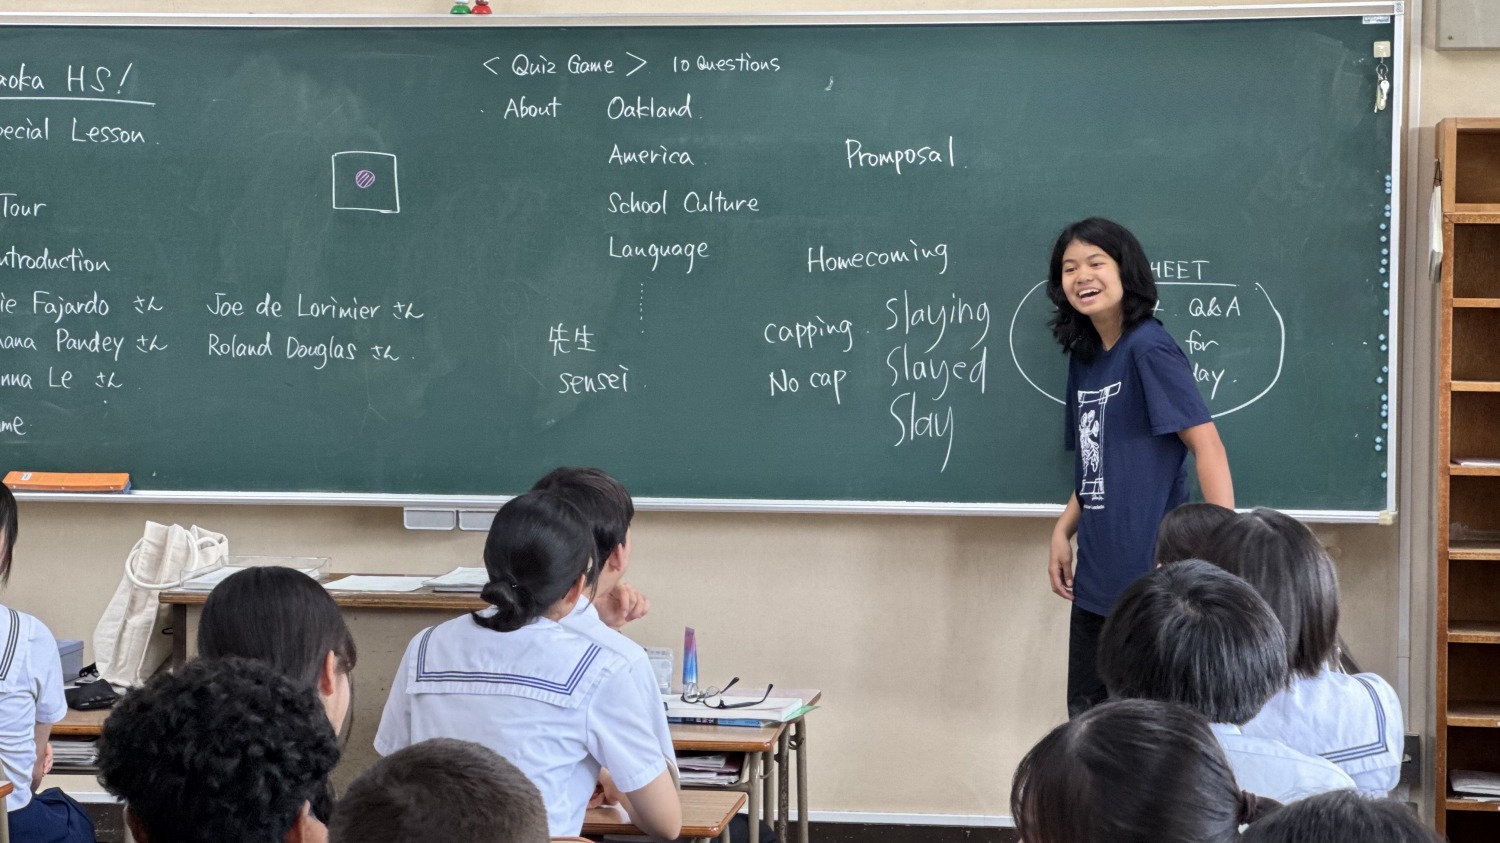 aoka HS!
pecial Lesson.
Tour
ntroduction
ie Fajardo さん
Joe de Lorimier さん
ana Pandey さん
Roland Douglas さん.
nna Le さん.
me.
< Quiz Game > 10 Questions
· About Oakland.
America.
School Culture
Language
先生
sensei.
Promposal.
Homecoming
capping.
No cap
Slaying
Slayed
Slay
HEET
. Q&A
for
day.